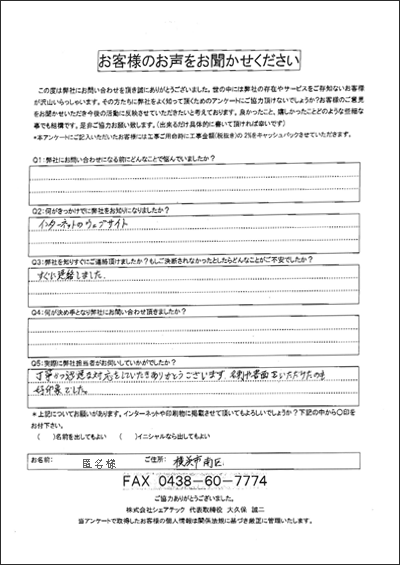 お客様のお声をお聞かせください
この度は弊社にお問い合わせを頂き誠にありがとうございました。世の中には弊社の存在やサービスをご存知ないお客様
が沢山いらっしゃいます。その方たちに弊社をよく知って頂くためのアンケートにご協力頂けないでしょうか?お客様のご意見
をお聞かせいただき今後の活動に反映させていただきたいと考えております。良かったこと、嬉しかったことどのような些細な
事でも結構です。是非ご協力お願い致します。(出来るだけ具体的に書いて頂ければ幸いです)
*本アンケートにご記入いただいたお客様には工事ご用命時に工事金額(税抜き)の2%をキャッシュバックさせていただきます。
Q1:弊社にお問い合わせになる前にどんなことで悩んでいましたか?
Q2:何がきっかけでに弊社をお知りになりましたか?
インターネットのウェブサイト
Q3:弊社を知りすぐにご連絡頂けましたか?もしご決断されなかったとしたらどんなことがご不安でしたか?
すぐに連絡しました。
Q4:何が決め手となり弊社にお問い合わせ頂きましたか?
Q5:実際に弊社担当者がお伺いしていかがでしたか?
丁寧かつ迅速な対応をしていただきありがとうございます。名刺や書面をいただけたのも
好印象でした。
*上記についてお願いがあります。インターネットや印刷物に掲載させて頂いてもよろしいでしょうか?下記の中から〇印を
お付け下さい。
( )名前を出してもよい ( )イニシャルなら出してもよい
お名前: 匿名様 ご住所: 横浜市南区
FAX 0438-60-7774
ご協力ありがとうございました。
株式会社シェアテック 代表取締役 大久保 誠二
当アンケートで取得したお客様の個人情報は関係法規に基づき厳正に管理いたします。